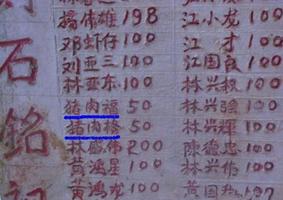 石
銘
伟雄198
邓虾仔100
刘亚三100
林亚东100
猪肉福50
猪肉格50
林盛伟200
黄鸿星100
黄鸿龙100
江小龙100
江才100
江国良100
林兴权100
林兴强100
林兴辉100
陈德忠100
林兴伟100
黄国